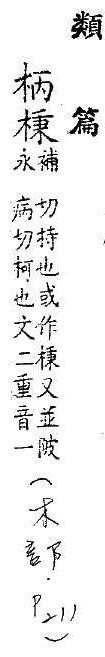 類篇
柄棅補永切持也或作棟又並陂病切柯也文二重音一(木部.P211)